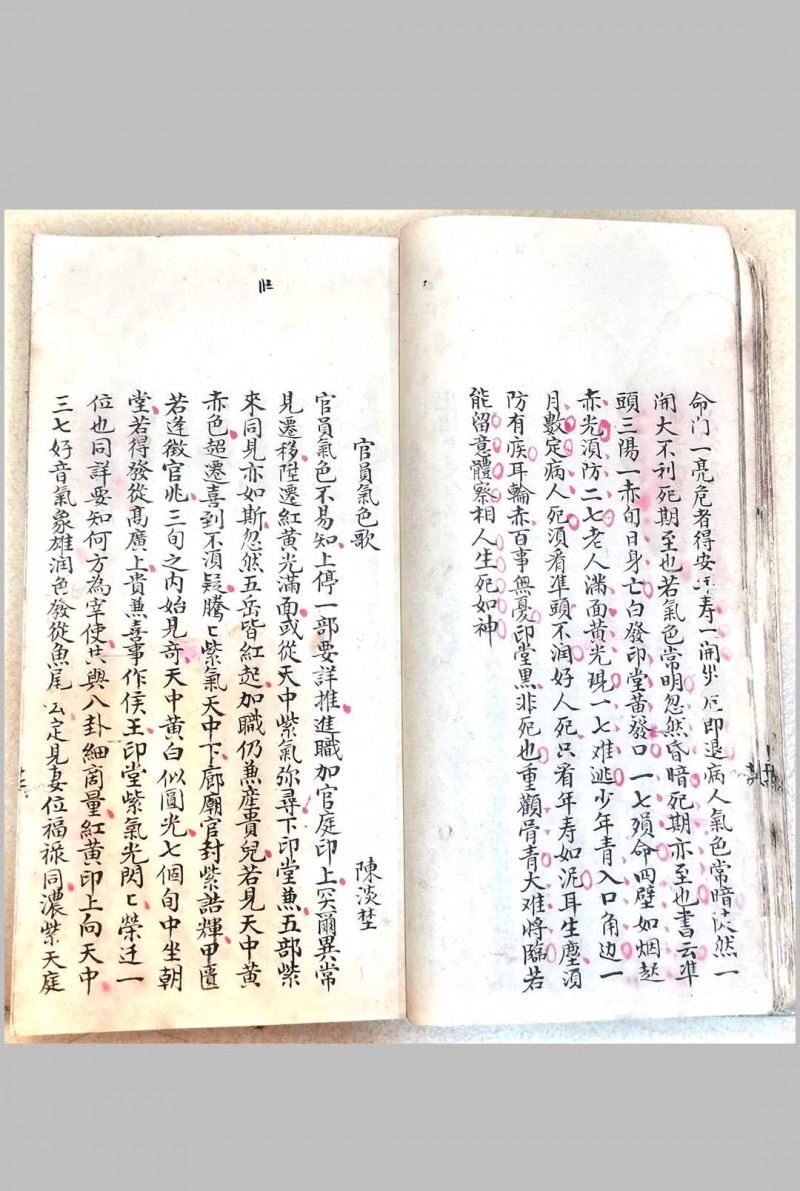 命门一亮危者得安 寿一開 厄即退病人氣色常暗忽然一
開大不利死期至也若氣色常明忽然昏暗死期亦至也書云準
頭三陽一赤旬日身亡白發印堂黄發口一七殞命四壁如烟起
赤光須防二七老人滿面黄光現一七难逃少年青入口角边一
月數定病人死須看準頭不润好人死只看年寿如泥耳生塵須
防有疾耳輪赤百事無憂印堂黑非死也重顴骨青大难將臨若
能留意體察相人生死如神
官員氣色歌 陳淡埜
官員氣色不易知上停一部要詳推進職加官庭印上突爾異常
見遷移陞遷紅黄光滿面或從天中紫氣弥尋下印堂兼五部紫
來同見亦如斯忽然五岳皆紅起加職仍兼産貴兒若見天中黄
赤色超遷喜到不須疑騰〻紫氣天中下廊廟官封紫誥輝甲匱
若逢徵官兆三旬之内始見奇天中黄白似圓光七個旬中坐朝
堂若得發從髙廣上貴兼喜事作侯王印堂紫氣光閃〻榮迁一
位也同詳要知何方為宰使共與八卦細商量紅黄印上向天中
三七好音氣象雄润色發從魚尾 定見妻位福禄同濃紫天庭